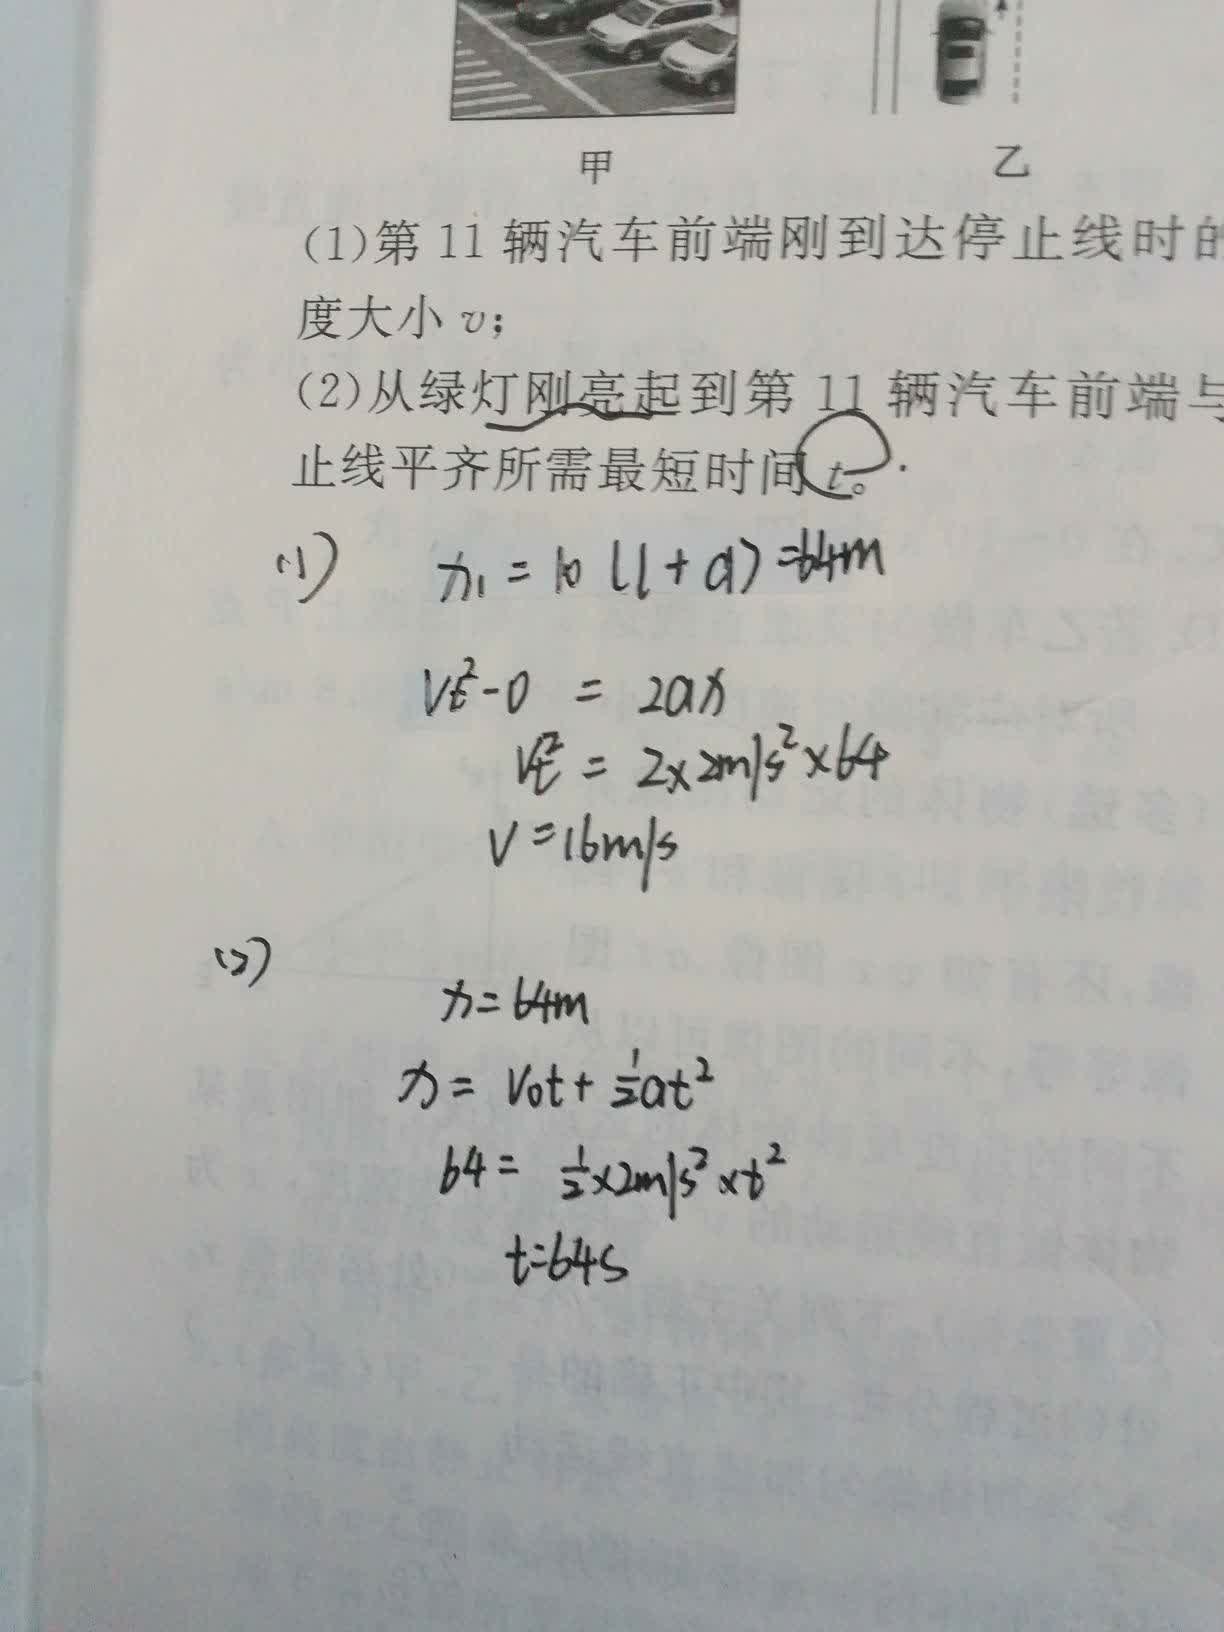 甲
乙
(1)第11辆汽车前端刚到达停止线时的
度大小v;
(2)从绿灯刚亮起到第11辆汽车前端与
止线平齐所需最短时间t。
(1) x₁=10(l+d)=64m
Vt²-0=2ax
Vt²=2×2m/s²×64
V=16m/s
(2)
x=64m
x=V₀t+½at²
64=½×2m/s²×t²
t=64s